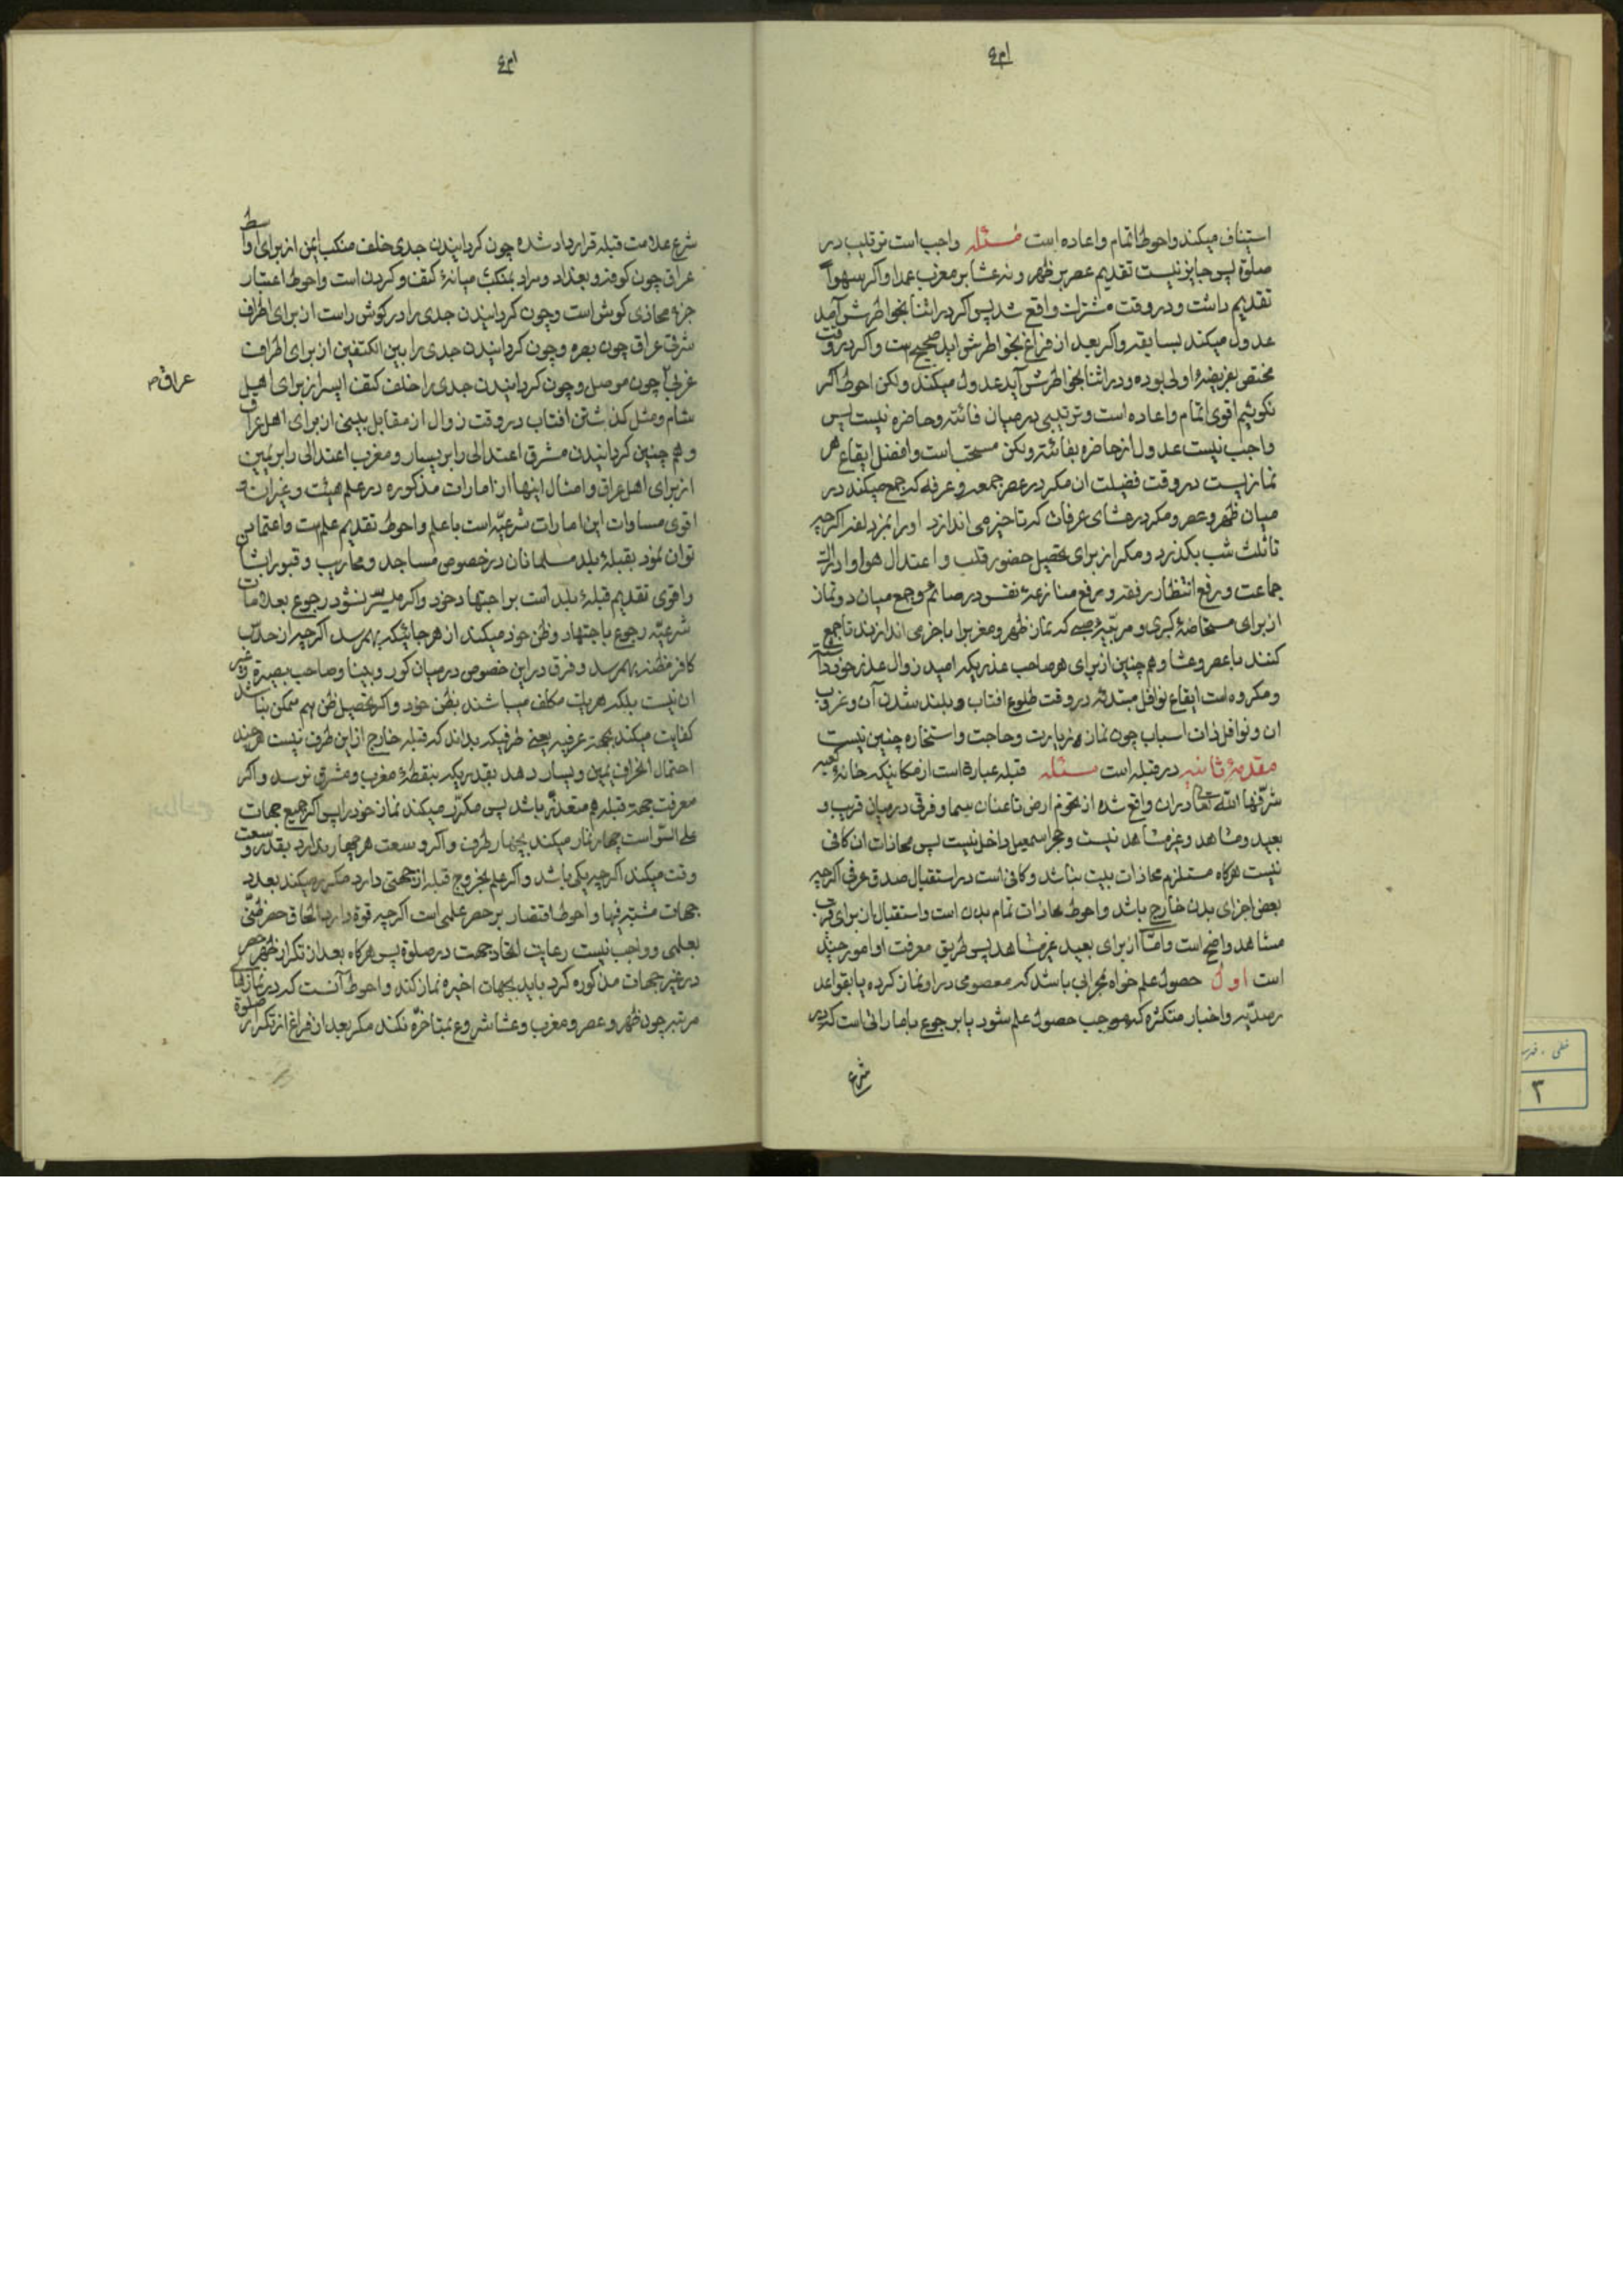 استیناف میکند و احوط اتمام و اعاده است مسئله واجب است ترتیب در
صلوة پس جایز نیست تقدیم عصر بر ظهر و نه عشا بر مغرب عمدا و اکر سهواً
تقدیم داشت و در وقت مشترک واقع شد پس اکر در اثنا بخواطرش آمد
عدول میکند بسابقه و اکر بعد از فراغ بخواطرش اید صحیح است و اکر در وقت
مختص بفریضهٔ اولی بوده و در اثنا بخواطرش آید عدول میکند ولکن احوط اکر
نکوئیم اقوی اتمام و اعاده است و ترتیبی در میان فائته و حاضره نیست پس
واجب نیست عدول از حاضره بفائته ولکن مستحب است و افضل ایقاع هر
نمازیست در وقت فضیلت ان مکر در عصر جمعه و عرفه که جمع میکند در
میان ظهر و عصر و مکر در عشای عرفات که تاخیر می اندازد او را بمزدلفه اکرچه
تا ثلث شب بکذرد و مکر از برای تحصیل حضور قلب و اعتدال هوا و ادراک
جماعت و رفع انتظار رفقه و رفع منازعهٔ نفس در صائم و جمع میان دو نماز
از برای مستحاضهٔ کبری و مربّیهٔ صبی که نماز ظهر و مغرب را باخر می اندازند تا جمع
کنند با عصر و عشا و هم چنین از برای هر صاحب عذریکه امید زوال عذر خود داشته
و مکروه است ایقاع نوافل مبتدئه در وقت طلوع افتاب و بلند شدن آن و غروب
ان و نوافل ذات اسباب چون نماز زیارت و حاجت و استخاره چنین نیست
مقدمهٔ ثانیه در قبله است مسئله قبله عبارة است از مکانیکه خانهٔ کعبه
شرّفها الله تعالی دران واقع شده از تخوم ارض تا عنان سما و فرقی در میان قریب و
بعید و مشاهد و غیر مشاهد نیست و حجر اسمعیل داخل نیست پس محاذات ان کافی
نیست هرکاه مستلزم محاذات بیت نباشد و کافی است در استقبال صدق عرفی اکرچه
بعض اجزای بدن خارج باشد و احوط محاذات تمام بدن است و استقبال از برای قریب
مشاهد واضح است و امّا از برای بعید غیر مشاهد پس طریق معرفت او امور چند
است اول حصول علم خواه بمحرابی باشد که معصومی در او نماز کرده یا بقواعد
رصدیّه و اخبار متکثره که موجب حصول علم شود یا برجوع باماراتی است که در
شرع
شرع علامت قبله قرارداد شده چون کردانیدن جدی خلف منکب ایمن از برای اواسط
عراق چون کوفه و بغداد و مراد بمنکب میانهٔ کتف و کردن است و احوط اعتبار
جزء محاذی کوش است و چون کردانیدن جدی را در کوش راست از برای اطراف
شرقی عراق چون بصره و چون کردانیدن جدی را بین الکتفین از برای اطراف
غربی چون موصل و چون کردانیدن جدی را خلف کتف ایسر از برای اهل
عراق
شام و مثل کذاشتن افتاب در وقت زوال از مقابل بینی از برای اهل عراق
و هم چنین کردانیدن مشرق اعتدالی را بر یسار و مغرب اعتدالی را بر یمین
از برای اهل عراق و امثال اینها از امارات مذکوره در علم هیئت و غیر ان و
اقوی مساوات این امارات شرعیّه است با علم و احوط تقدیم علم است و اعتماد می
توان نمود بقبلهٔ بلد مسلمانان در خصوص مساجد و محاریب و قبور ایشان
و اقوی تقدیم قبلهٔ بلد است بر اجتهاد خود و اکر میسر نشود رجوع بعلامات
شرعیّه رجوع باجتهاد و ظن خود میکند از هر جائیکه بهم رسد اکرچه از
کافر مظنه بهم رسد و فرق در این خصوص در میان کور و بینا و صاحب بصیرة و غیر
ان نیست بلکه هر یک مکلف میباشند بظن خود و اکر تحصیل ظن هم ممکن نباشد
کفایت میکند بجهة عرفیه یعنی طرفیکه بداند که قبله خارج از این طرف نیست هر چند
احتمال انحراف یمین و یسار دهد بقدریکه بنقطهٔ مغرب و مشرق نرسد و اکر
معرفت جهة قبله هم متعذّر باشد پس مکرّر میکند نماز خود را پس اکر جمیع جهات
علی السّوا است چهار نماز میکند بچهار طرف و اکر وسعت هر چهار ندارد بقدر وسعت
وقت میکند اکرچه یکی باشد و اکر علم بخروج قبله از جهتی دارد مکرر میکند بعدد
جهات مشتبه فیها و احوط اقتصار بر حصر علمی است اکرچه قوة دارد الحاق حصر ظنّی
بعلمی و واجب نیست رعایت اتحاد جهت در صلوة پس هرکاه بعد از تکرار ظهر حصر
در غیر جهات مذکوره کرد باید بجهات اخیره نماز کند و احوط آنست که در نمازهای
مرتبه چون ظهر و عصر و مغرب و عشا شروع بمتاخرّه نکند مکر بعد از فراغ از تکرار صلوة